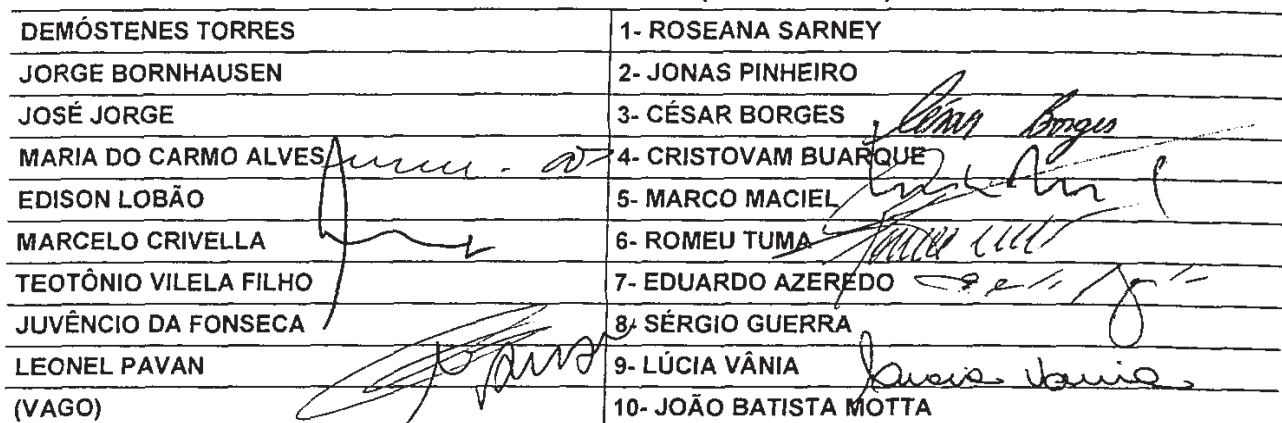 DEMÓSTENES TORRES 1- ROSEANA SARNEY
JORGE BORNHAUSEN 2- JONAS PINHEIRO
JOSÉ JORGE 3- CÉSAR BORGES César Borges
MARIA DO CARMO ALVES 4- CRISTOVAM BUARQUE
EDISON LOBÃO 5- MARCO MACIEL
MARCELO CRIVELLA 6- ROMEU TUMA
TEOTÔNIO VILELA FILHO 7- EDUARDO AZEREDO
JUVÊNCIO DA FONSECA 8- SÉRGIO GUERRA
LEONEL PAVAN 9- LÚCIA VÂNIA Lucia Vania
(VAGO) 10- JOÃO BATISTA MOTTA